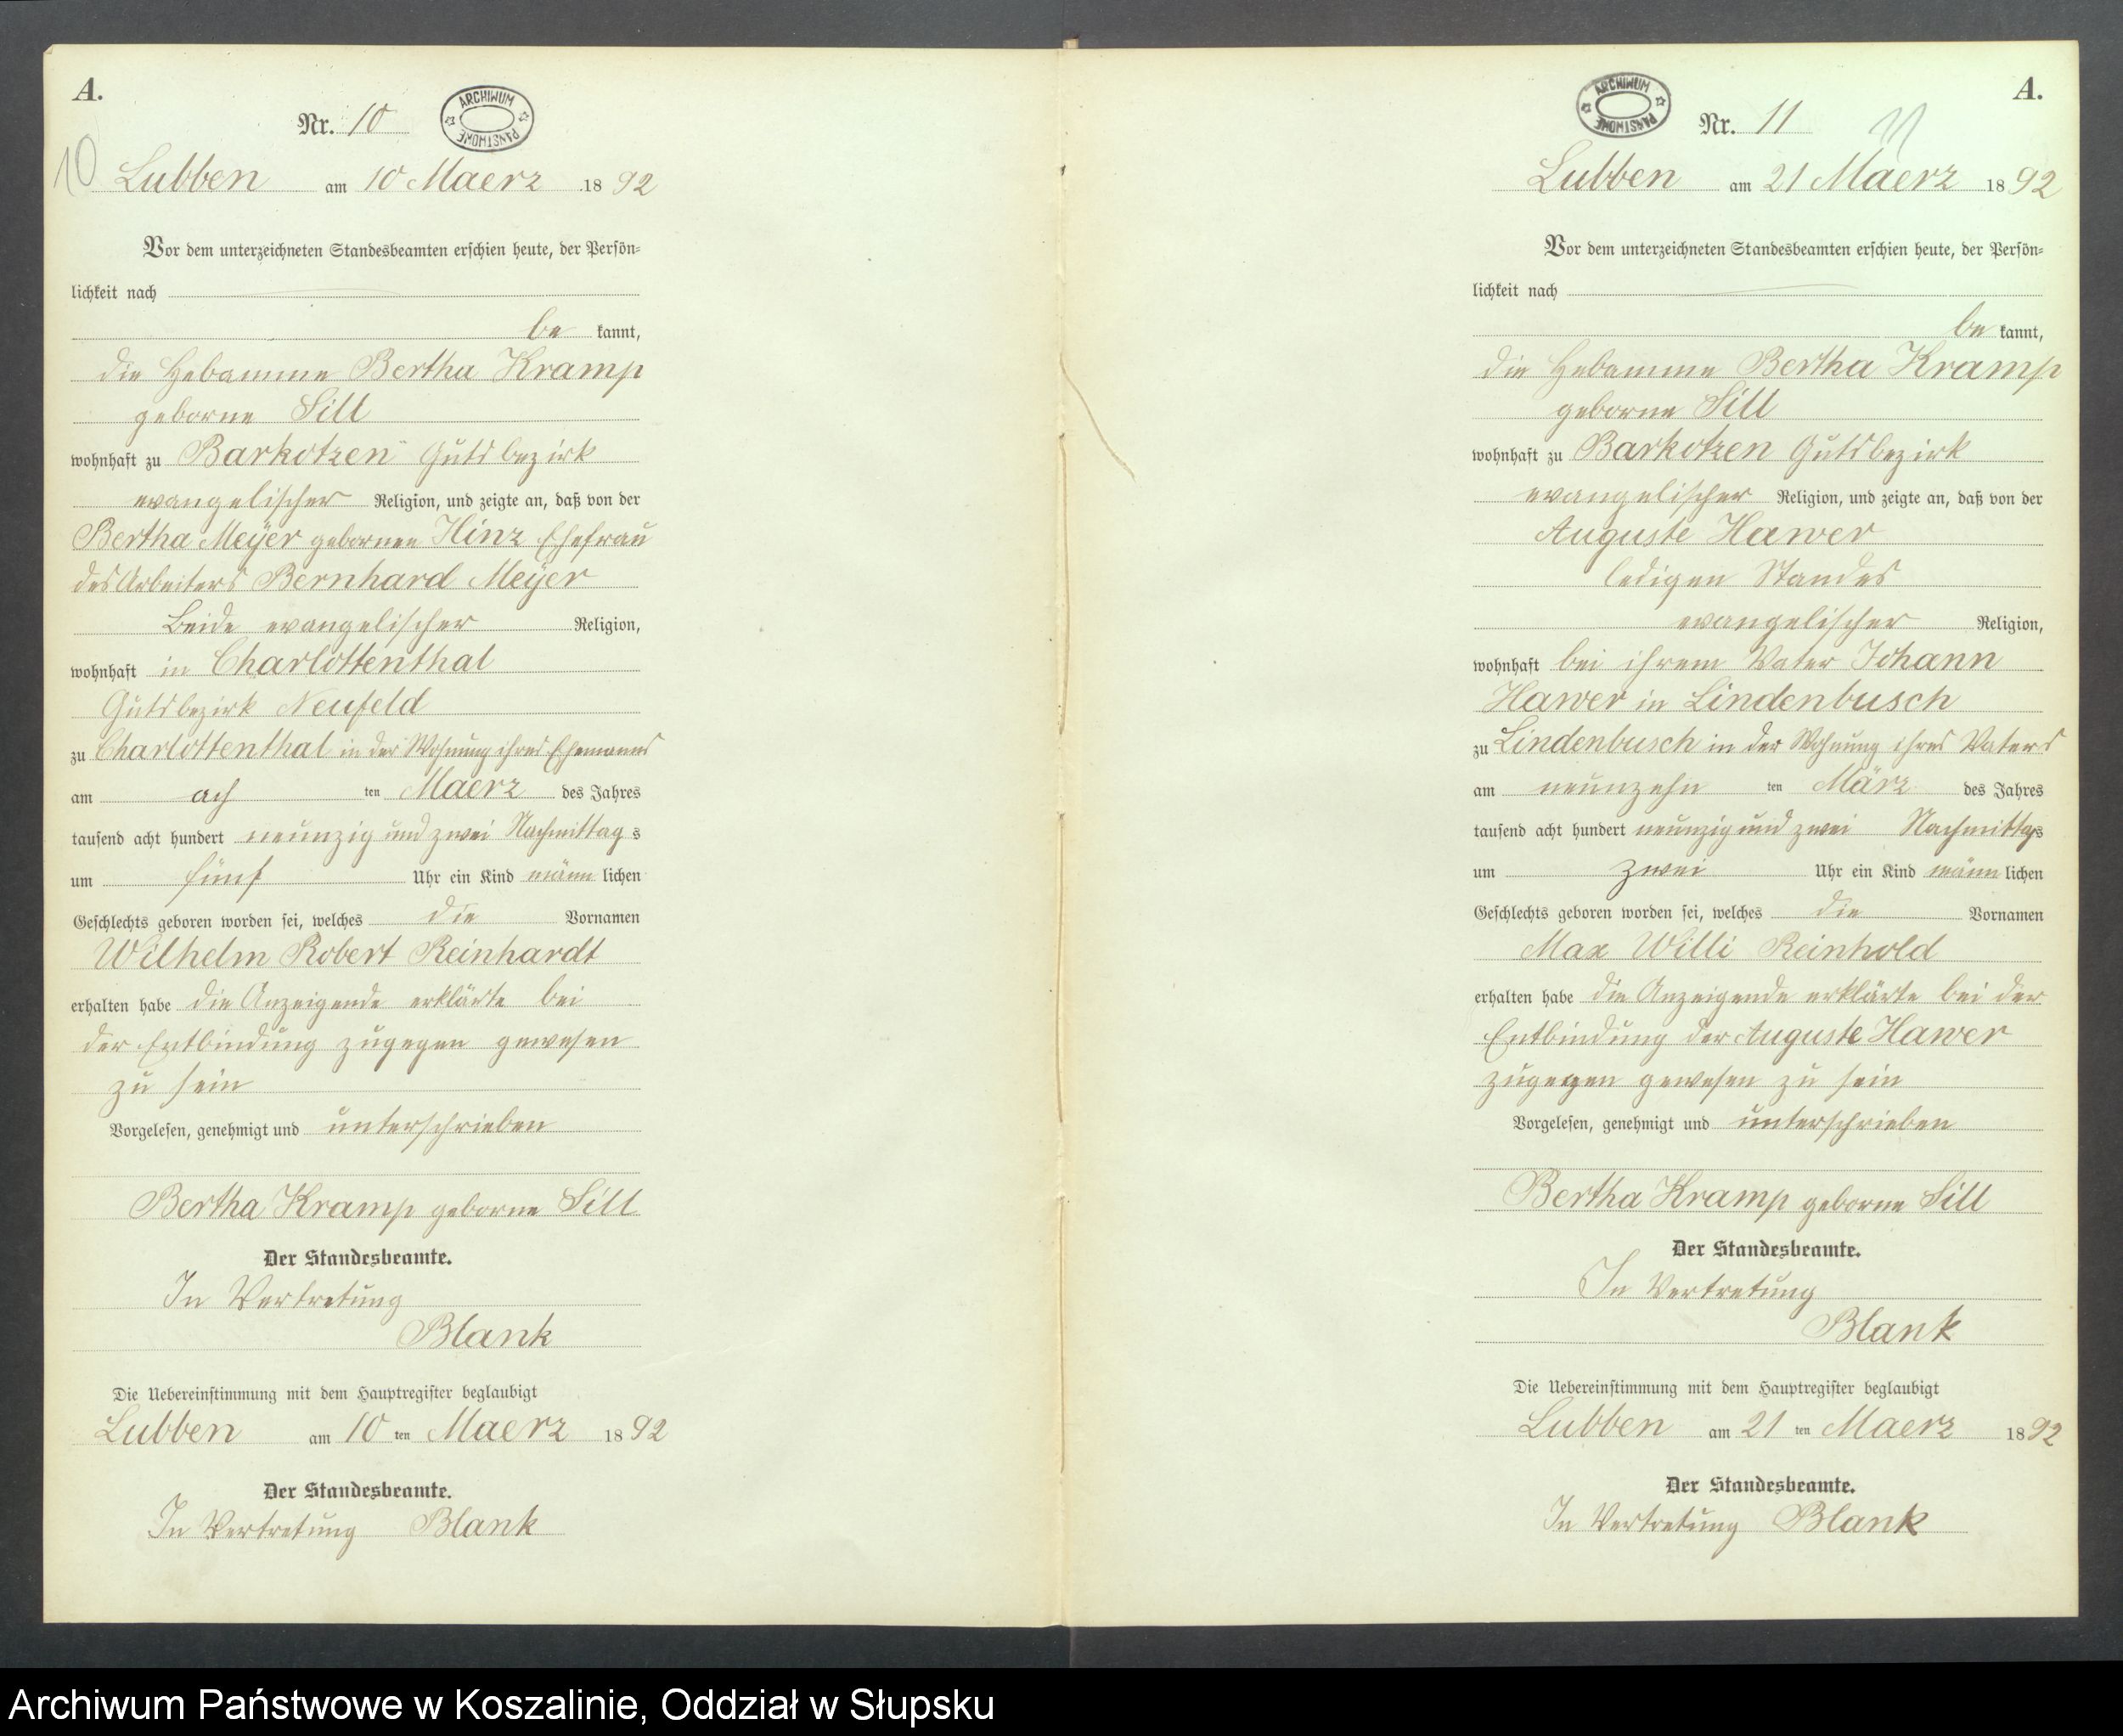 A.
Nr. 10
ARCHIWUM PAŃSTWOWE
10
Lubben am 10 Maerz 1892
Vor dem unterzeichneten Standesbeamten erschien heute, der Persön=
lichkeit nach
be kannt,
die Hebamme Bertha Kramp
geborne Sill
wohnhaft zu Barkotzen Gutsbezirk
evangelischer Religion, und zeigte an, daß von der
Bertha Meÿer gebornen Hinz Ehefrau
des Arbeiters Bernhard Meÿer
Beide evangelischer Religion,
wohnhaft in Charlottenthal
Gutsbezirk Neufeld
zu Charlottenthal in der Wohnung ihres Ehemanns
am ach ten Maerz des Jahres
tausend acht hundert neunzig und zwei Nachmittag s
um fünf Uhr ein Kind männ lichen
Geschlechts geboren worden sei, welches die Vornamen
Wilhelm Robert Reinhardt
erhalten habe die Anzeigende erklärte bei
der Entbindung zugegen gewesen
zu sein
Vorgelesen, genehmigt und unterschrieben
Bertha Kramp geborne Sill
Der Standesbeamte.
In Vertretung
Blank
Die Uebereinstimmung mit dem Hauptregister beglaubigt
Lubben am 10 ten Maerz 1892
Der Standesbeamte.
In Vertretung Blank
A.
ARCHIWUM PAŃSTWOWE
Nr. 11
11
Lubben am 21 Maerz 1892
Vor dem unterzeichneten Standesbeamten erschien heute, der Persön=
lichkeit nach
be kannt,
die Hebamme Bertha Kramp
geborne Sill
wohnhaft zu Barkotzen Gutsbezirk
evangelischer Religion, und zeigte an, daß von der
Auguste Hawer
ledigen Standes
evangelischer Religion,
wohnhaft bei ihrem Vater Johann
Hawer in Lindenbusch
zu Lindenbusch in der Wohnung ihres Vaters
am neunzehn ten März des Jahres
tausend acht hundert neunzig und zwei Nachmittgs
um zwei Uhr ein Kind männ lichen
Geschlechts geboren worden sei, welches die Vornamen
Max Willi Reinhold
erhalten habe die Anzeigende erklärte bei der
Entbindung der Auguste Hawer
zugegen gewesen zu sein
Vorgelesen, genehmigt und unterschrieben
Bertha Kramp geborne Sill
Der Standesbeamte.
In Vertretung
Blank
Die Uebereinstimmung mit dem Hauptregister beglaubigt
Lubben am 21 ten Maerz 1892
Der Standesbeamte.
In Vertretung Blank
Archiwum Państwowe w Koszalinie, Oddział w Słupsku